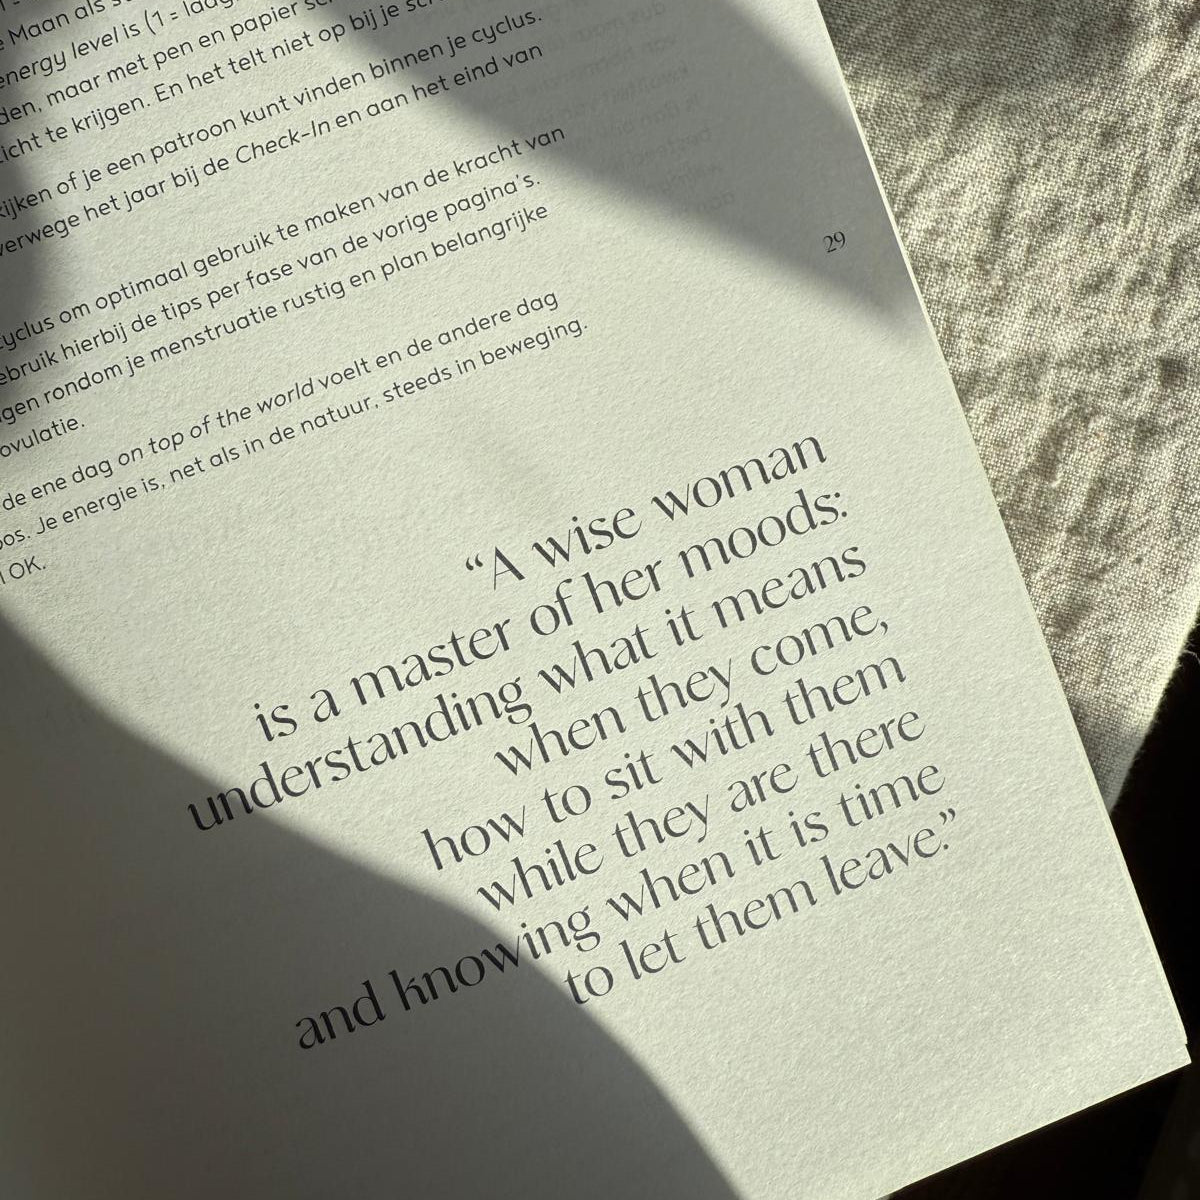 Maan als
energy level is (1 =
den, maar met pen en papier
icht te krijgen. En het telt niet op bij je
ijken of je een patroon kunt vinden binnen je cyclus.
verwege het jaar bij de Check-In en aan het eind van
cyclus om optimaal gebruik te maken van de kracht van
ebruik hierbij de tips per fase van de vorige pagina's.
gen rondom je menstruatie rustig en plan belangrijke
ovulatie.
de ene dag on top of the world voelt en de andere dag
os. Je energie is, net als in de natuur, steeds in beweging.
OK.
29
“A wise woman
is a master of her moods:
understanding what it means
when they come,
how to sit with them
while they are there
and knowing when it is time
to let them leave.”